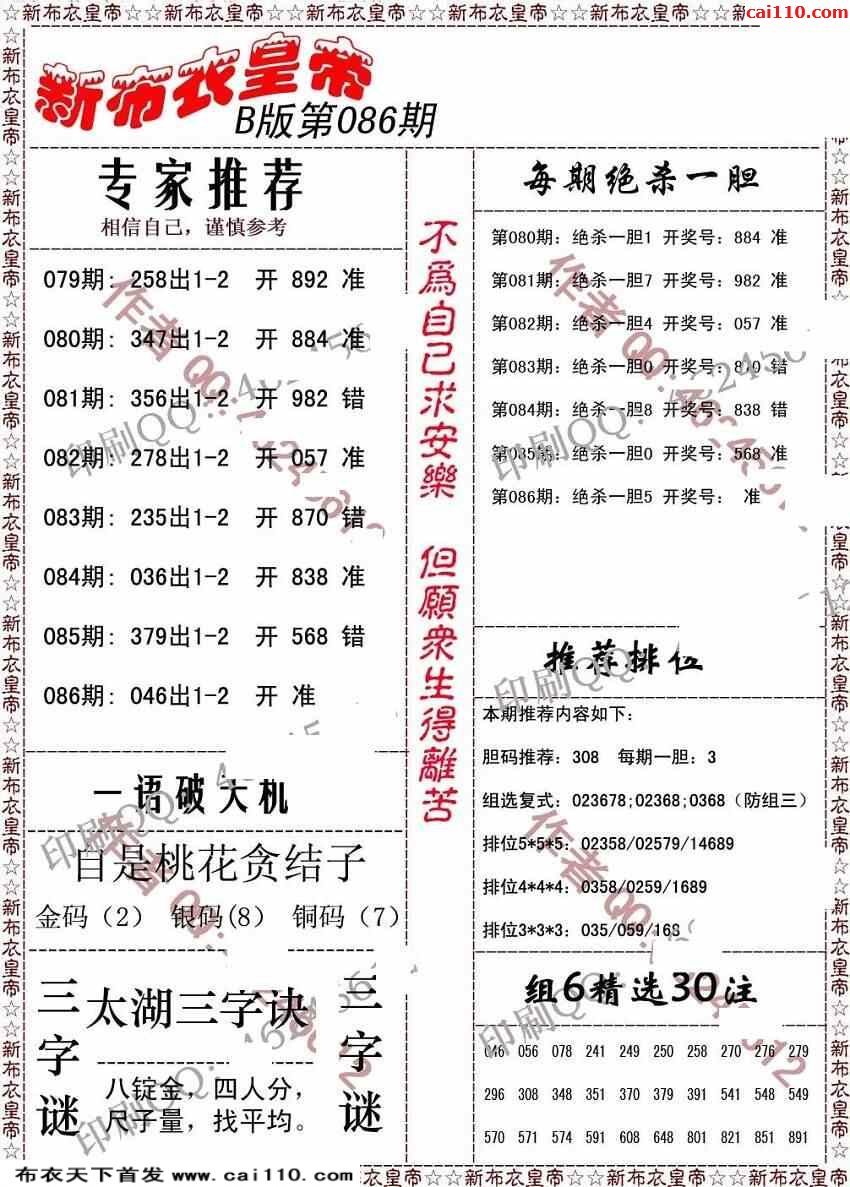 ☆☆新布衣皇帝☆☆新布衣皇帝☆☆新布衣皇帝☆☆新布衣皇帝☆☆新布衣皇帝☆☆新布衣皇帝☆☆
cai110.com
新布衣皇帝
B版第086期
专家推荐
相信自己，谨慎参考
079期: 258出1-2 开 892 准
080期: 347出1-2 开 884 准
081期: 356出1-2 开 982 错
082期: 278出1-2 开 057 准
083期: 235出1-2 开 870 错
084期: 036出1-2 开 838 准
085期: 379出1-2 开 568 错
086期: 046出1-2 开 准
一语破天机
自是桃花贪结子
金码（2） 银码(8） 铜码（7）
三字谜
太湖三字诀
八锭金，四人分，
尺子量，找平均。
三字谜
不爲自己求安樂 但願衆生得離苦
每期绝杀一胆
第080期: 绝杀一胆1 开奖号: 884 准
第081期: 绝杀一胆7 开奖号: 982 准
第082期: 绝杀一胆4 开奖号: 057 准
第083期: 绝杀一胆0 开奖号: 870 错
第084期: 绝杀一胆8 开奖号: 838 错
第085期: 绝杀一胆0 开奖号: 568 准
第086期: 绝杀一胆5 开奖号: 准
推荐排位
本期推荐内容如下:
胆码推荐: 308 每期一胆: 3
组选复式: 023678;02368;0368（防组三）
排位5*5*5: 02358/02579/14689
排位4*4*4: 0358/0259/1689
排位3*3*3: 035/059/168
组6精选30注
046 056 078 241 249 250 258 270 276 279
296 308 348 351 370 379 391 541 548 549
570 571 574 591 608 648 801 821 851 891
布衣天下首发 www.cai110.com
☆新布衣皇帝☆☆新布衣皇帝☆☆新布衣皇帝☆☆新布衣皇帝☆